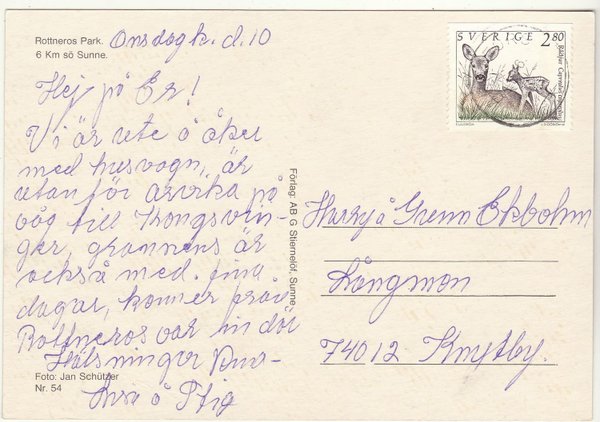 Rottneros Park.
6 Km sö Sunne.
Onsdag k. d. 10
Hej på Er!
Vi är ute å åker
med husvogn, är
utan för arvika på
väg till Kongsvin-
ger, grannens är
också med. fina
dagar, kommer från
Rottneros var in där
Hälsningar
å Stig
Foto: Jan Schützer
Nr. 54
Förlag: AB G Stiernelöf, Sunne
SVERIGE 2.80
Rådjur Capreolus capreolus
Harry å Grenn Ekbohm
Långmon
74012 Knytby.